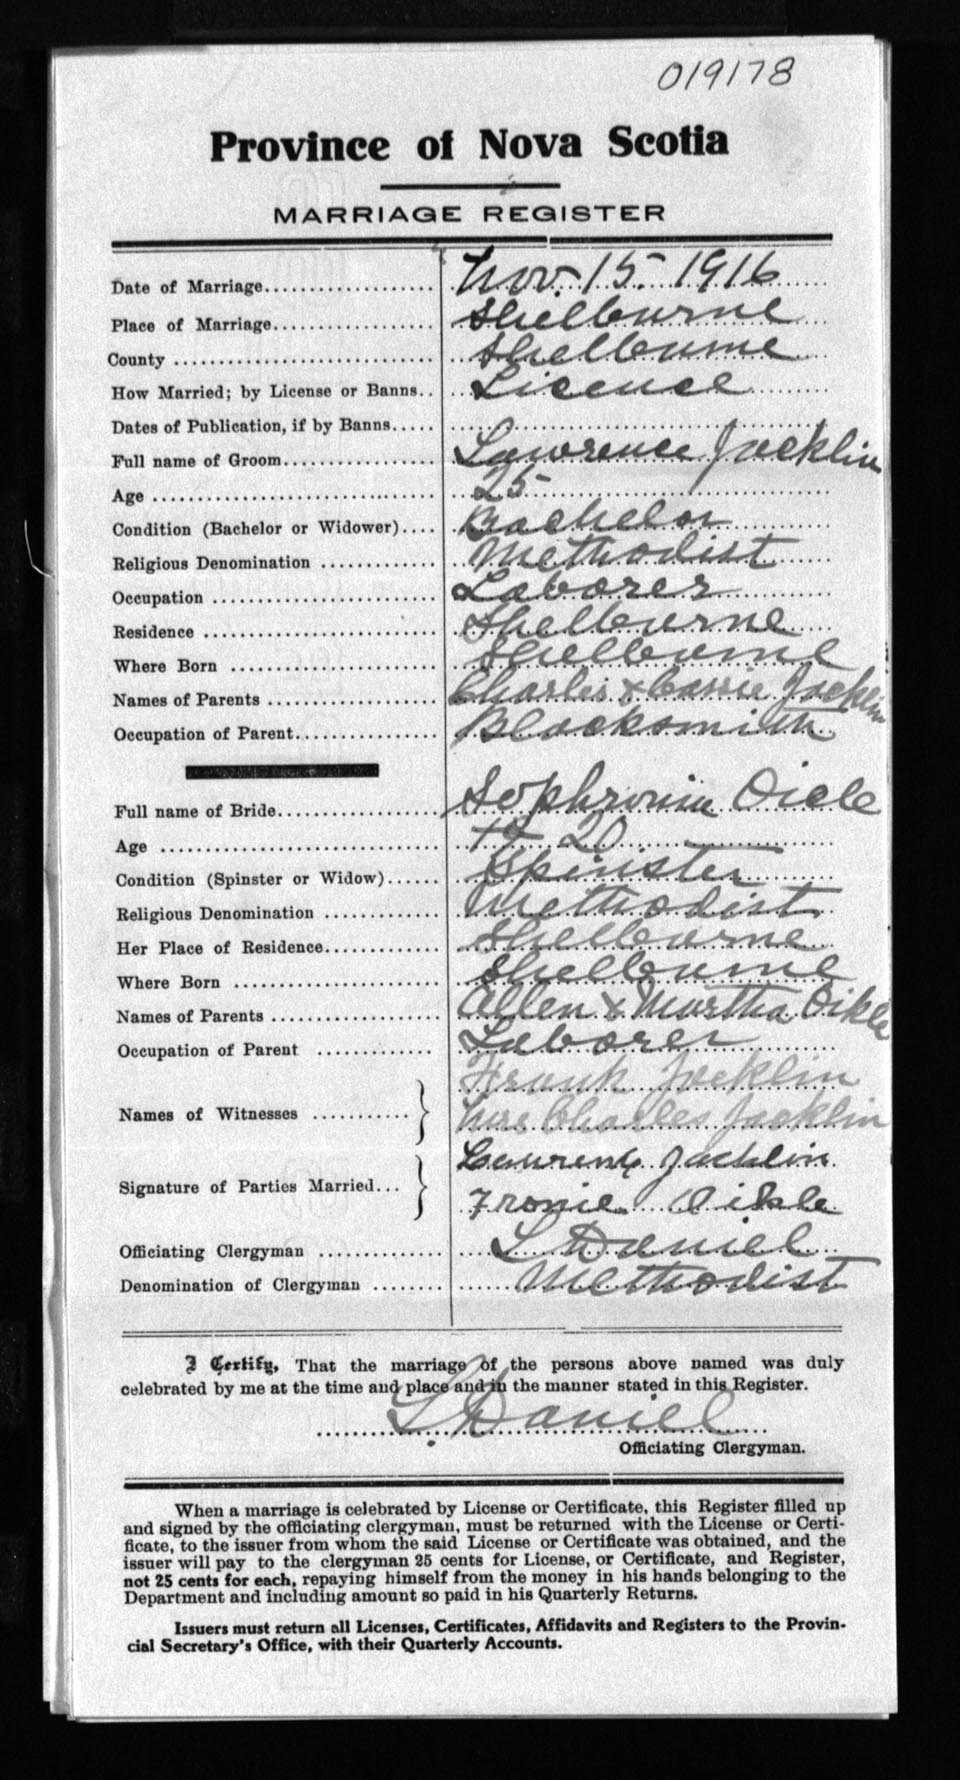 019178
Province of Nova Scotia
MARRIAGE REGISTER
Date of Marriage Nov. 15. 1916
Place of Marriage Shelburne
County Shelburne
How Married; by License or Banns Licence
Dates of Publication, if by Banns
Full name of Groom Lawrence Jacklin
Age 25
Condition (Bachelor or Widower) Bachelor
Religious Denomination Methodist
Occupation Laborer
Residence Shelburne
Where Born Shelburne
Names of Parents Charles & Cassie Jacklin
Occupation of Parent Blacksmith
Full name of Bride Sophronia Oicle
Age 20
Condition (Spinster or Widow) Spinster
Religious Denomination Methodist
Her Place of Residence Shelburne
Where Born Shelburne
Names of Parents Allen & Martha Oikle
Occupation of Parent Laborer
Frank Jacklin
Names of Witnesses
Mrs Charles Jacklin
Laurenc Jacklin
Signature of Parties Married
Fronie Oikle
Officiating Clergyman L Daniel
Denomination of Clergyman Methodist
I Certify, That the marriage of the persons above named was duly
celebrated by me at the time and place and in the manner stated in this Register.
L. Daniel
Officiating Clergyman.
When a marriage is celebrated by License or Certificate, this Register filled up
and signed by the officiating clergyman, must be returned with the License or Certi-
ficate, to the issuer from whom the said License or Certificate was obtained, and the
issuer will pay to the clergyman 25 cents for License, or Certificate, and Register,
not 25 cents for each, repaying himself from the money in his hands belonging to the
Department and including amount so paid in his Quarterly Returns.
Issuers must return all Licenses, Certificates, Affidavits and Registers to the Provin-
cial Secretary's Office, with their Quarterly Accounts.